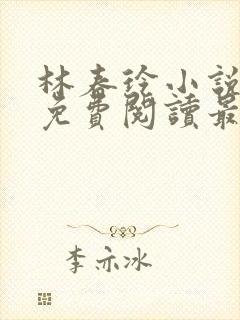 林春徐小說
免費閱讀最
李亦冰